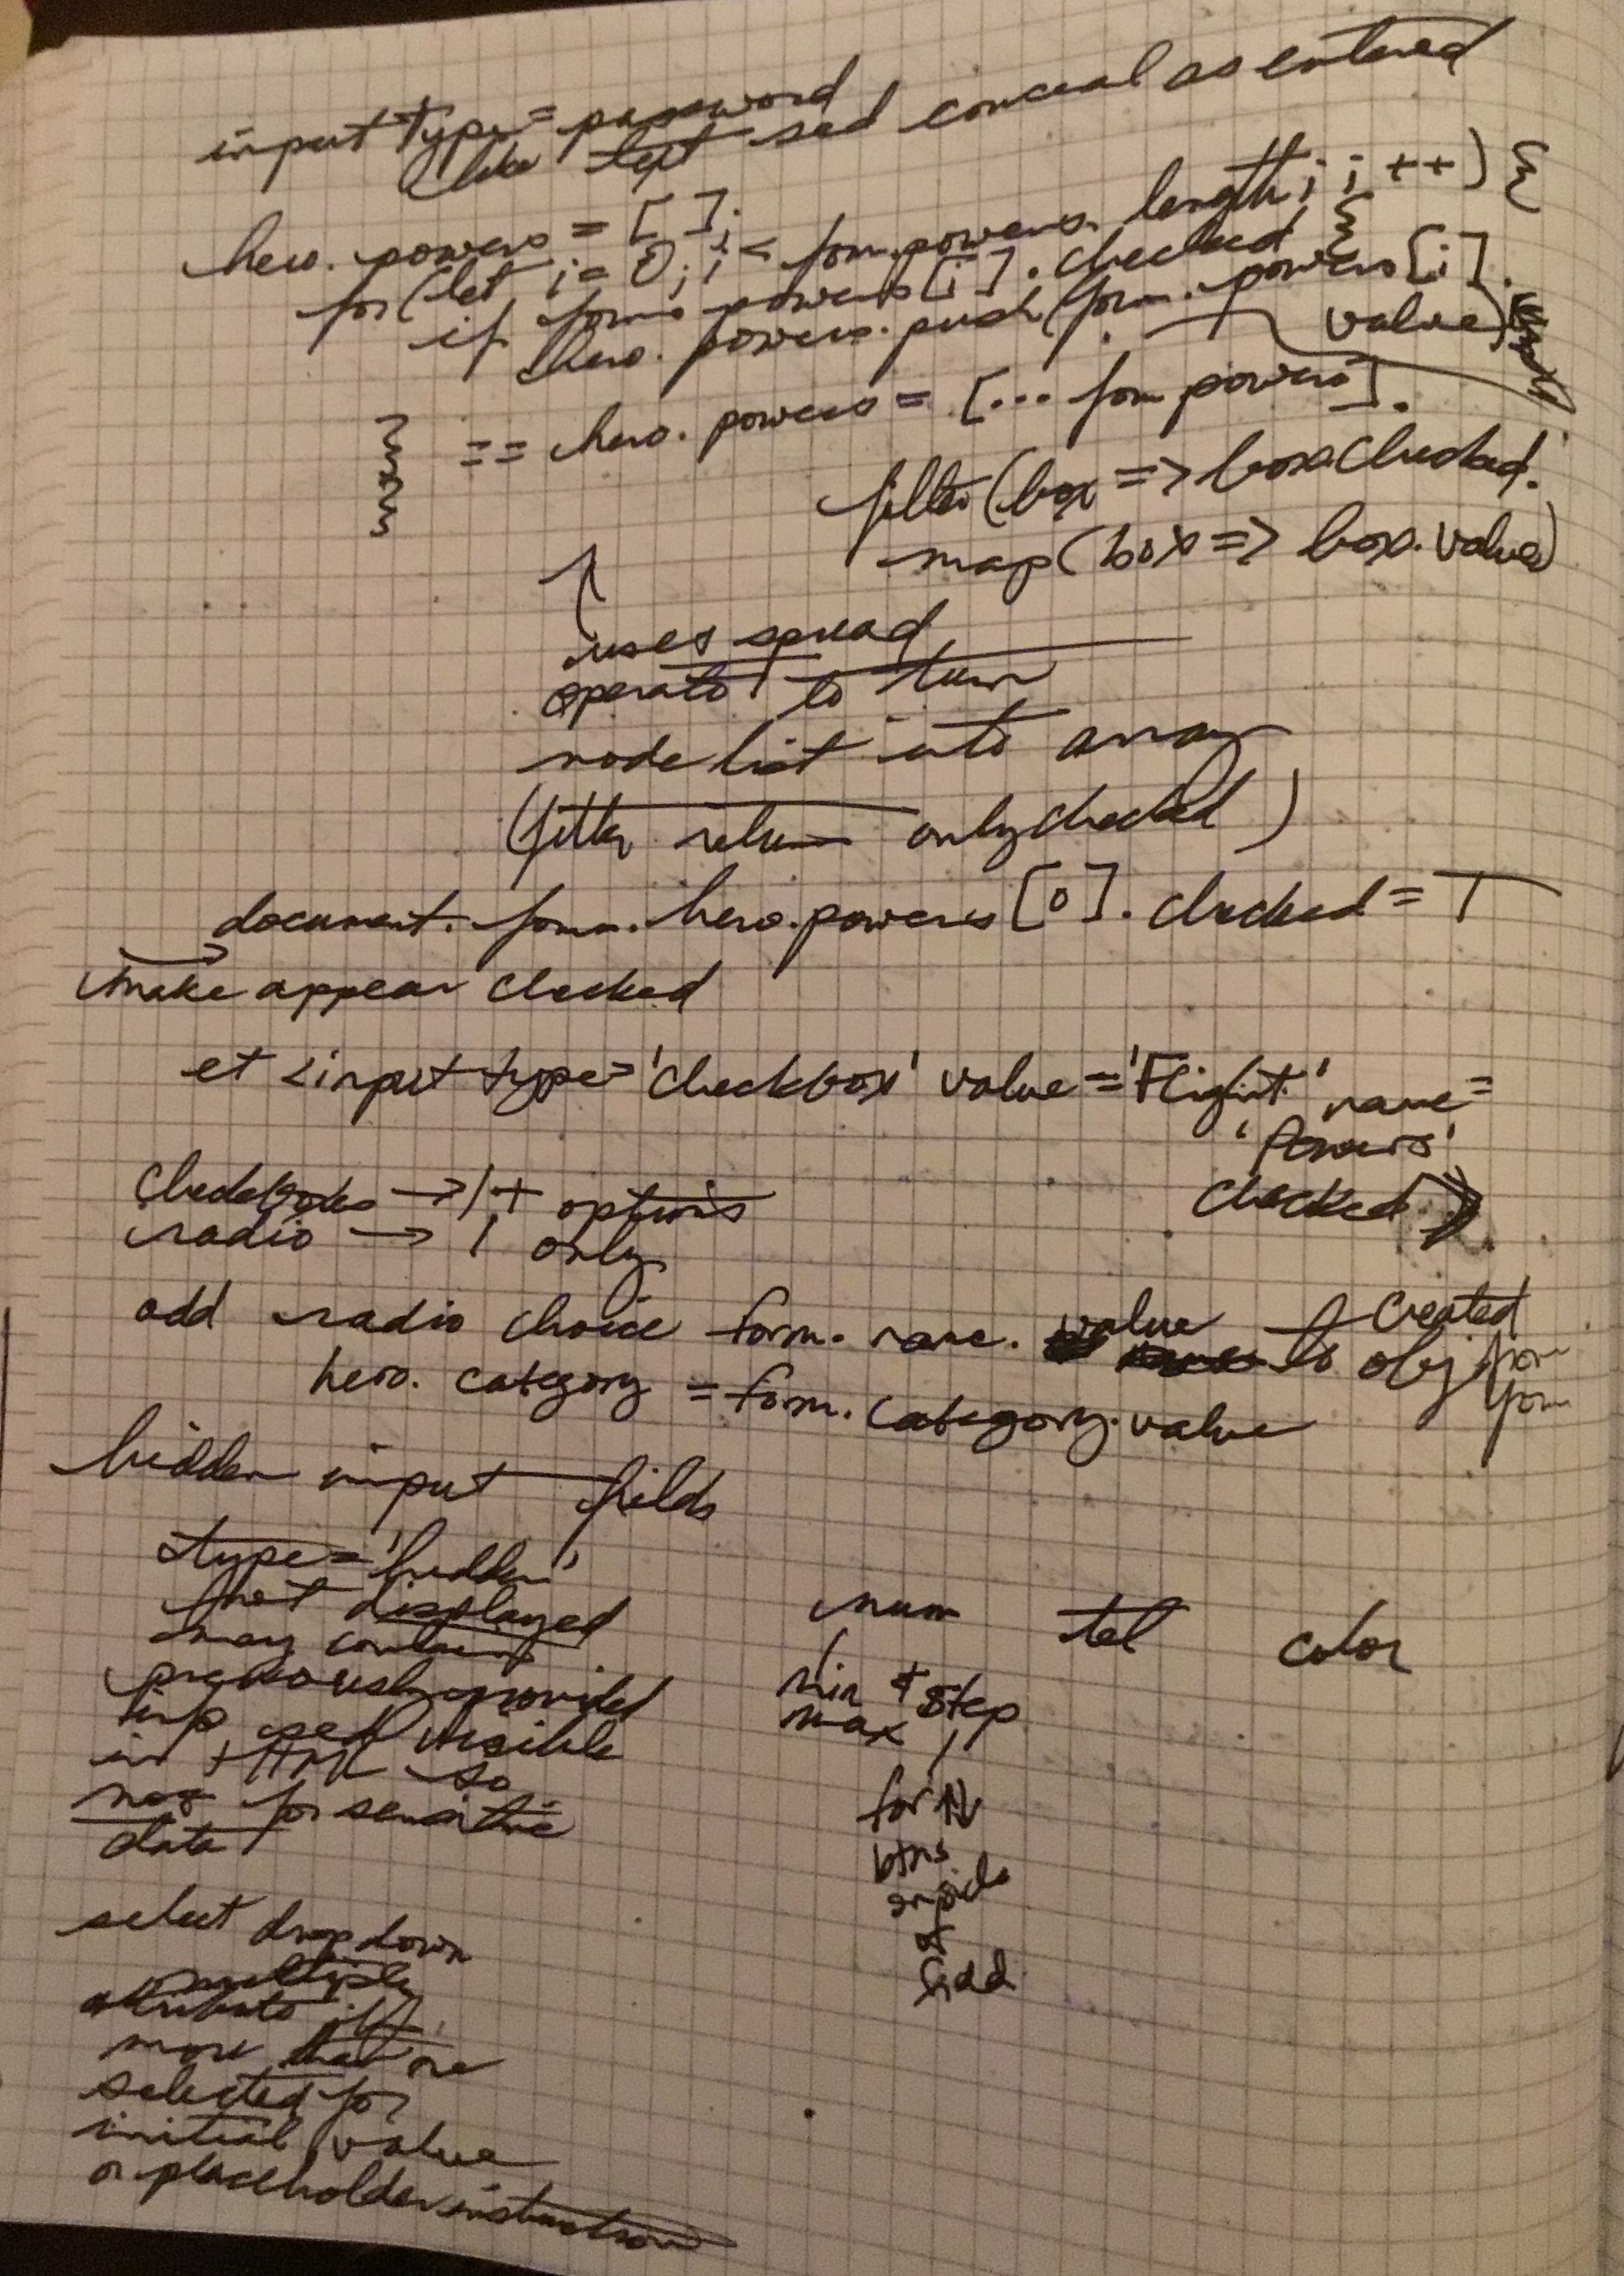 input type = password
like text conceal as entered
hero.powers = [ ];
for (let i = 0; i < form.powers.length; i++) {
if form.powers[i].checked {
hero.powers.push(form.powers[i].
value)
== hero.powers = [... form.powers].
filter(box => box.checked.
map(box => box.value)
uses spread
operator to turn
node list into array
(filter return only checked)
document.form.hero.powers[0].checked = T
make appear checked
et <input type='checkbox' value='Flight' name=
'Powers'
checked >
Checkboxes → 1+ options
radio → 1 only
add radio choice form.name.value to created
obj from
form
hero.category = form.category.value
hidden input fields
type='hidden'
not displayed
may contain
previously provided
info visible
in HTML so
not for sensitive
data
num tel color
min & step
max
for
btns
inside
of
field
select dropdown
multiple
attribute if
more that one
selected for
initial value
or placeholder instruction